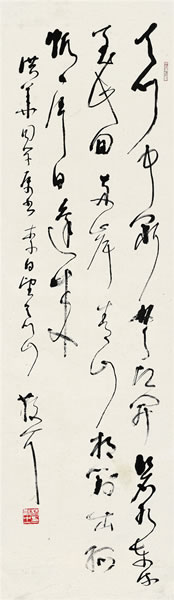 天門中斷楚江開碧水東流
至此回兩岸青山相對出孤
帆一片日邊來
李白望天門山
散耳